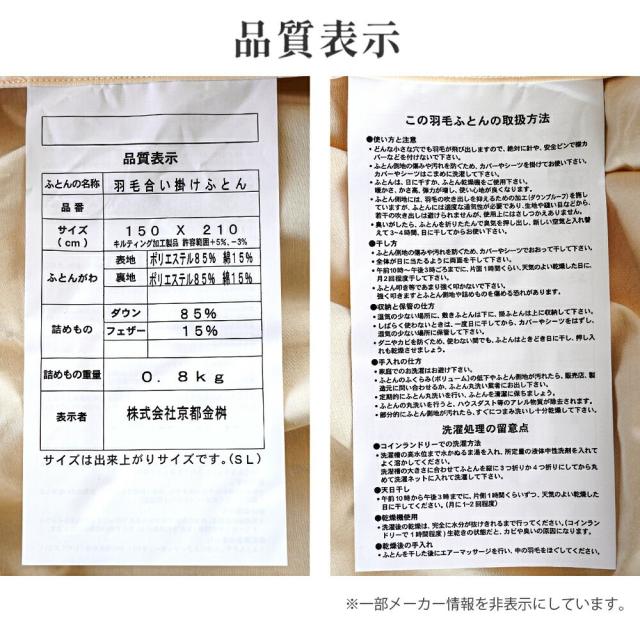 品質表示
品質表示
ふとんの名称 羽毛合い掛けふとん
品番
サイズ(cm) 150 X 210
キルティング加工製品 許容範囲+5%、−3%
ふとんがわ 表地 ポリエステル85% 綿15%
裏地 ポリエステル85% 綿15%
詰めもの ダウン 85%
フェザー 15%
詰めもの重量 0.8kg
表示者 株式会社京都金桝
サイズは出来上がりサイズです。(SL)
この羽毛ふとんの取扱方法
●使い方と注意
・どんな小さな穴でも羽毛が飛び出しますので、絶対に針や、安全ピンで襟カ
バーなどを付けないで下さい。
・ふとん側地の傷みや汚れを防ぐため、カバーやシーツを掛けてお使い下さい。
カバーやシーツはこまめに洗濯して下さい。
・ふとんは、日に干すか、ふとん乾燥機をご使用下さい。
暖かさ、かさ高、弾力が増し、使い心地が良くなります。
・ふとん側地には、羽毛の吹き出しを抑えるための加工(ダウンプルーフ)を施し
ていますが、ふとんには適度な通気性が必要であり、生地や縫い目などから、
若干の吹き出しは避けられませんが、使用上にはさしつかえありません。
・臭いがしたら、ふとんを折りたたんで臭気を押し出し、新しい空気と入れ替
えて3~4時間、日に干してからお使い下さい。
●干し方
・ふとん側地の傷みや汚れを防ぐため、カバーやシーツでおおって干して下さい。
・全体が日に当たるように両面を干して下さい。
・午前10時~午後3時ごろまでに、片面1時間くらい、天気のよい乾燥した日に、
月2回程度干して下さい。
・ふとん叩き等であまり強く叩かないで下さい。
強く叩きますとふとん側地や詰めものを傷める恐れがあります。
●収納と保管の仕方
・湿気の少ない場所に、敷きふとんは下に、掛ふとんは上に収納して下さい。
・しばらく使わないときは、一度日に干してから、カバーやシーツをはずし、
湿気の少ない場所に保管して下さい。
・ダニやカビを防ぐため、使わない間でも、ふとんはときどき日に干し、押し入
れも乾燥させましょう。
●手入れの仕方
・家庭でのお洗濯はお避け下さい。
・ふとんのふくらみ(ボリューム)の低下やふとん側地が汚れたら、販売店、製
造元に問い合わせるか、ふとん丸洗い業者にお出し下さい。
・定期的にふとん丸洗いを行い、ふとんを清潔に保ちましょう。
・ふとんの丸洗いを行うと、ハウスダスト等のアレル物質が除去されます。
・部分的にふとん側地が汚れたら、すぐにつまみ洗いし十分乾燥して下さい。
洗濯処理の留意点
●コインランドリーでの洗濯方法
・洗濯槽の高水位まで水かぬるま湯を入れ、所定量の液体中性洗剤を入れて
よく溶かしてください。
・洗濯槽の大きさに合わせてふとんを縦に3つ折りか4つ折りにしてから丸
めて洗濯ネットに入れて洗濯して下さい。
●天日干し
・午前10時から午後3時までに、片側1時間くらいずつ、天気のよい乾燥した
日に干してください。(月に1~2回程度)
●乾燥機使用
・洗濯後の乾燥は、完全に水分が抜けきれるまで行ってください。(コインラン
ドリーで1時間程度)生乾きの状態だと、カビや臭いの原因になります。
●乾燥後の手入れ
・ふとんを干した後にエアーマッサージを行い、中の羽毛をほぐしてください。
※一部メーカー情報を非表示にしています。